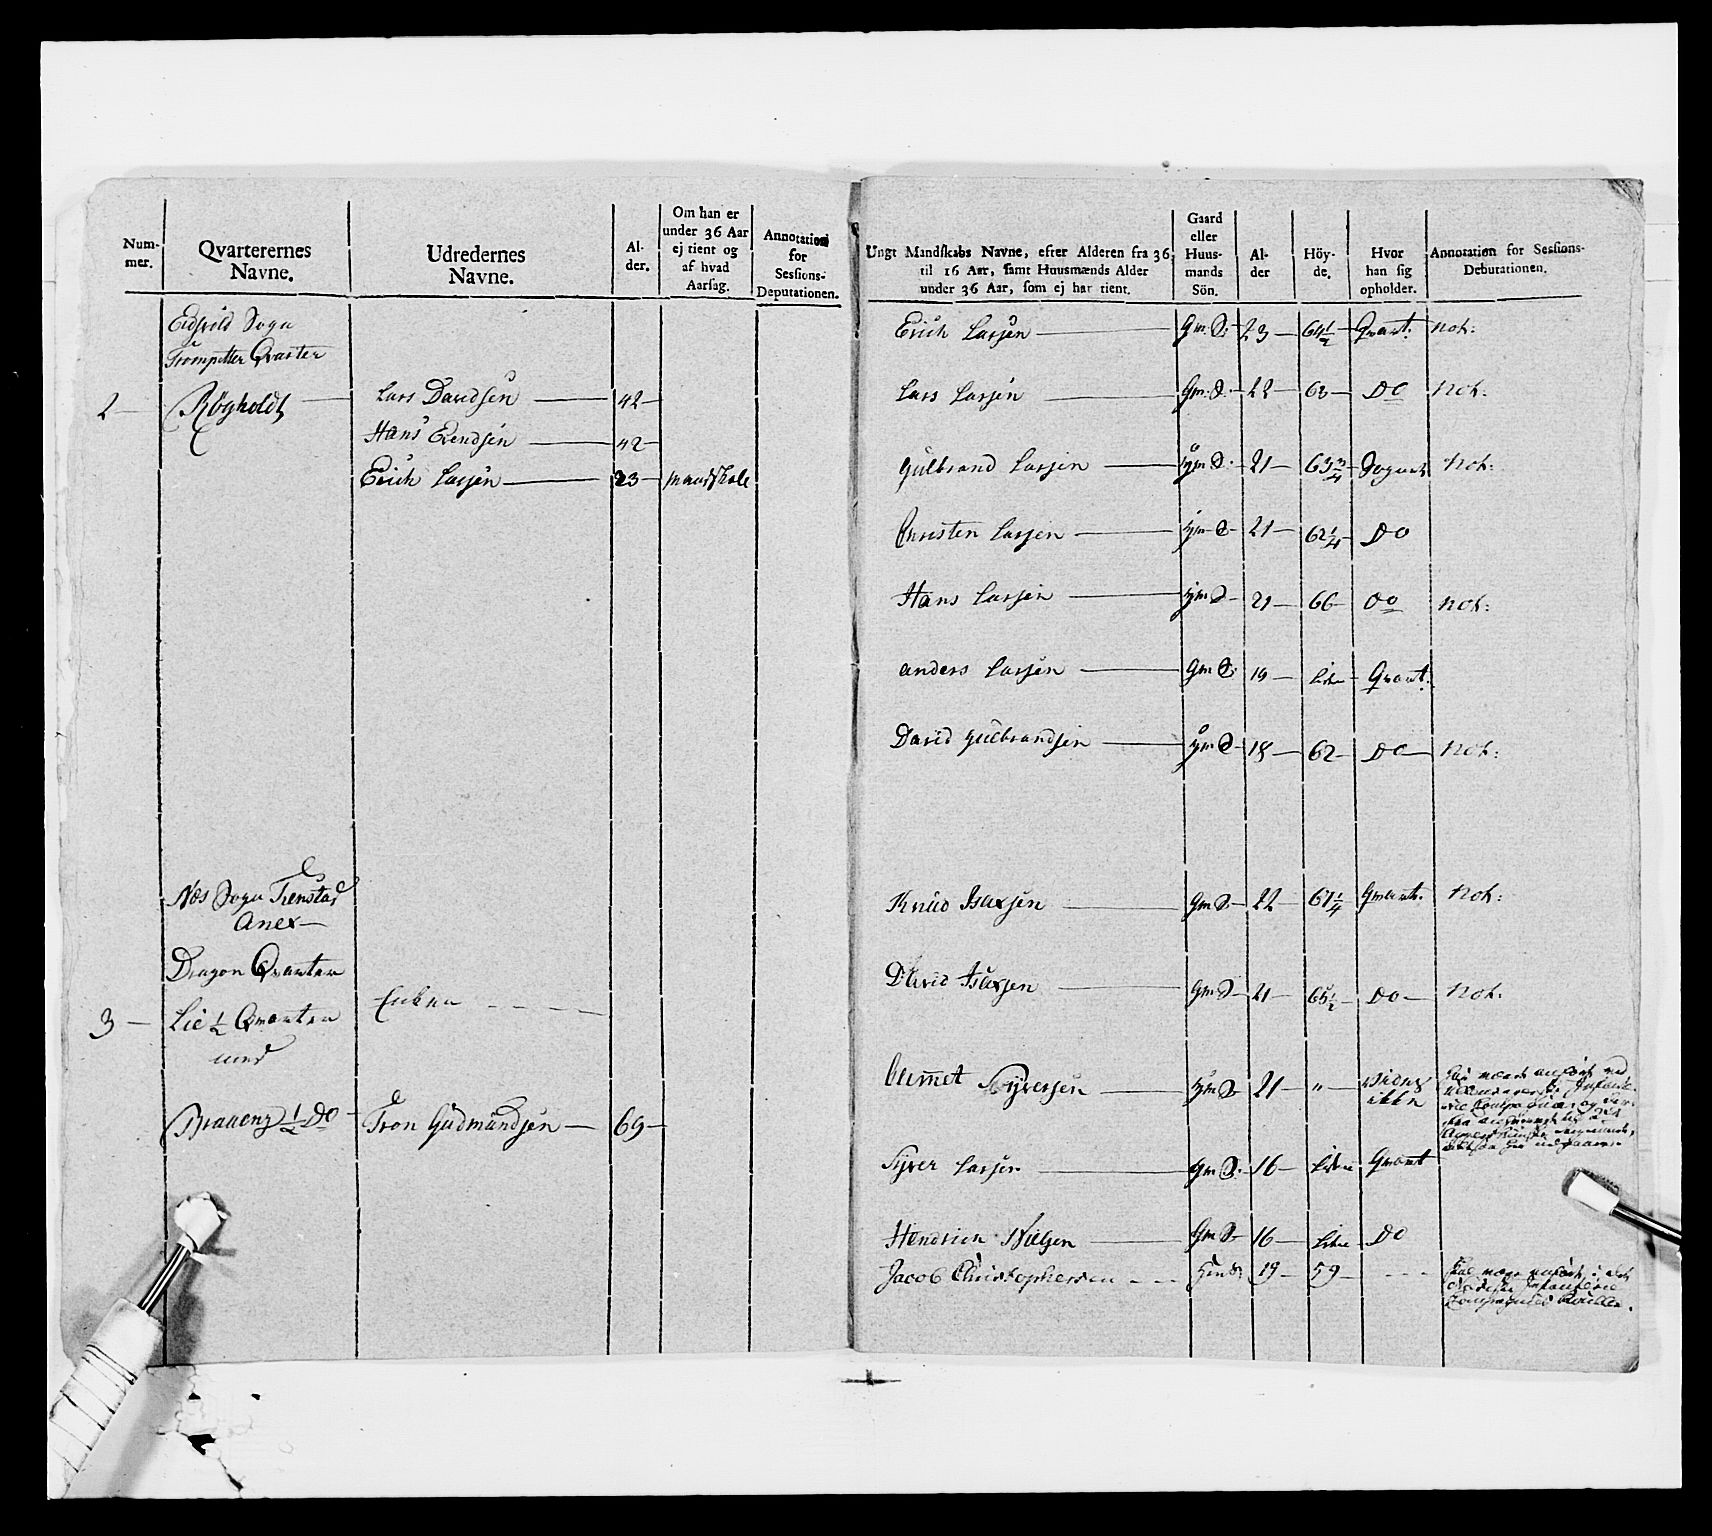 Num-
mer.
Qvarterernes
Navne.
Udredernes
Navne.
Al-
der.
Om han er
under 36 Aar
ej tient og
af hvad
Aarsag.
Annotation
for
Sessions-
Deputationen.
Eidsvild Sogn
Trompetter Qvarter
2 Røgholdt Lars Davidsen 42
Hans Evendsen 42
Erich Larsen 23 mandskab
Næs Sogn Tienstad
Anex
Dragon Qvarteer
3 Lie 1/2 Qvarteer Enken
med
Braaeng 1/2 Do Tron Gudmundsen 69
Ungt Mandskabs Navne, efter Alderen fra 36
til 16 Aar, samt Huusmænds Alder
under 36 Aar, som ej har tient.
Gaard
eller
Huus-
mands
Sön.
Al-
der
Höy-
de.
Hvor
han sig
opholder.
Annotation for Sessions-
Deputationen.
Erich Larsen Gm: S: 23 64 1/2 Qvart: Not:
Lars Larsen Gm: S: 22 60 Do Not:
Gulbrand Larsen Gm S: 21 63 3/4 Sognet Not:
Christen Larsen Gm S 21 62 1/4 Do
Hans Larsen Gm S 21 66 Do Not:
Anders Larsen Gm S: 19 Liden Qvart:
David Gulbrandsen Gm S 18 62 Do Not:
Knud Isaxsen Gm S 22 67 1/4 Qvart. Not:
David Isaxsen Gm S 21 65 1/2 Do Not:
Ammet Syversen Gm S 21 " vides
ikke
Syver Larsen Gm S: 16 Liden Qvart
Hendrich Nielsen Gm S 16 Liden Do
Jacob Christophersen 19 59